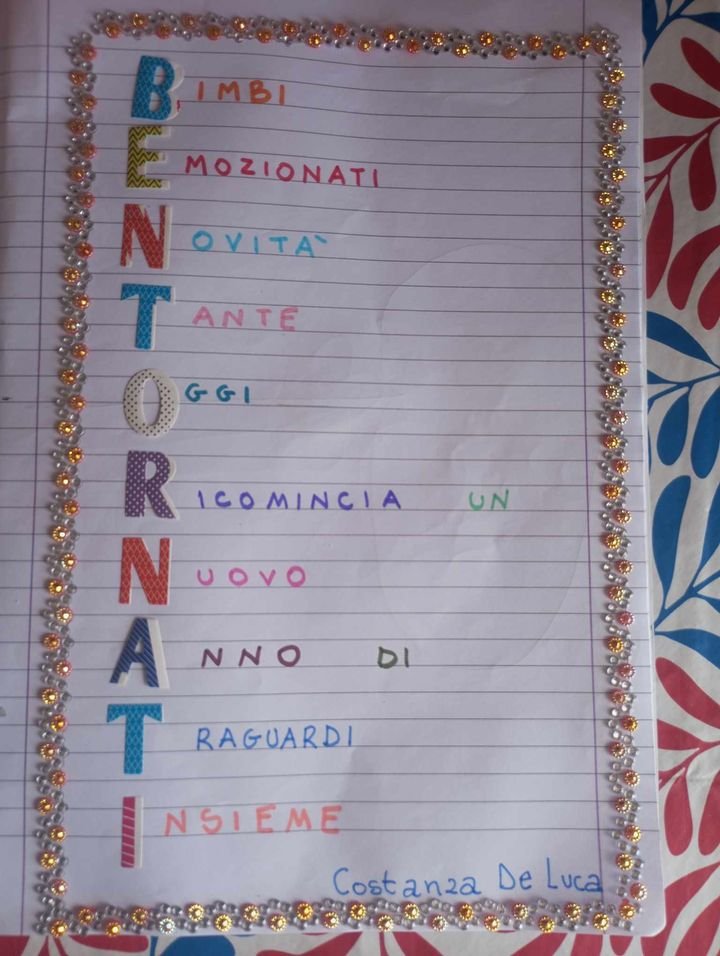 BIMBI
EMOZIONATI
NOVITA`
TANTE
OGGI
RICOMINCIA UN
NUOVO
ANNO DI
TRAGUARDI
INSIEME
Costanza De Luca